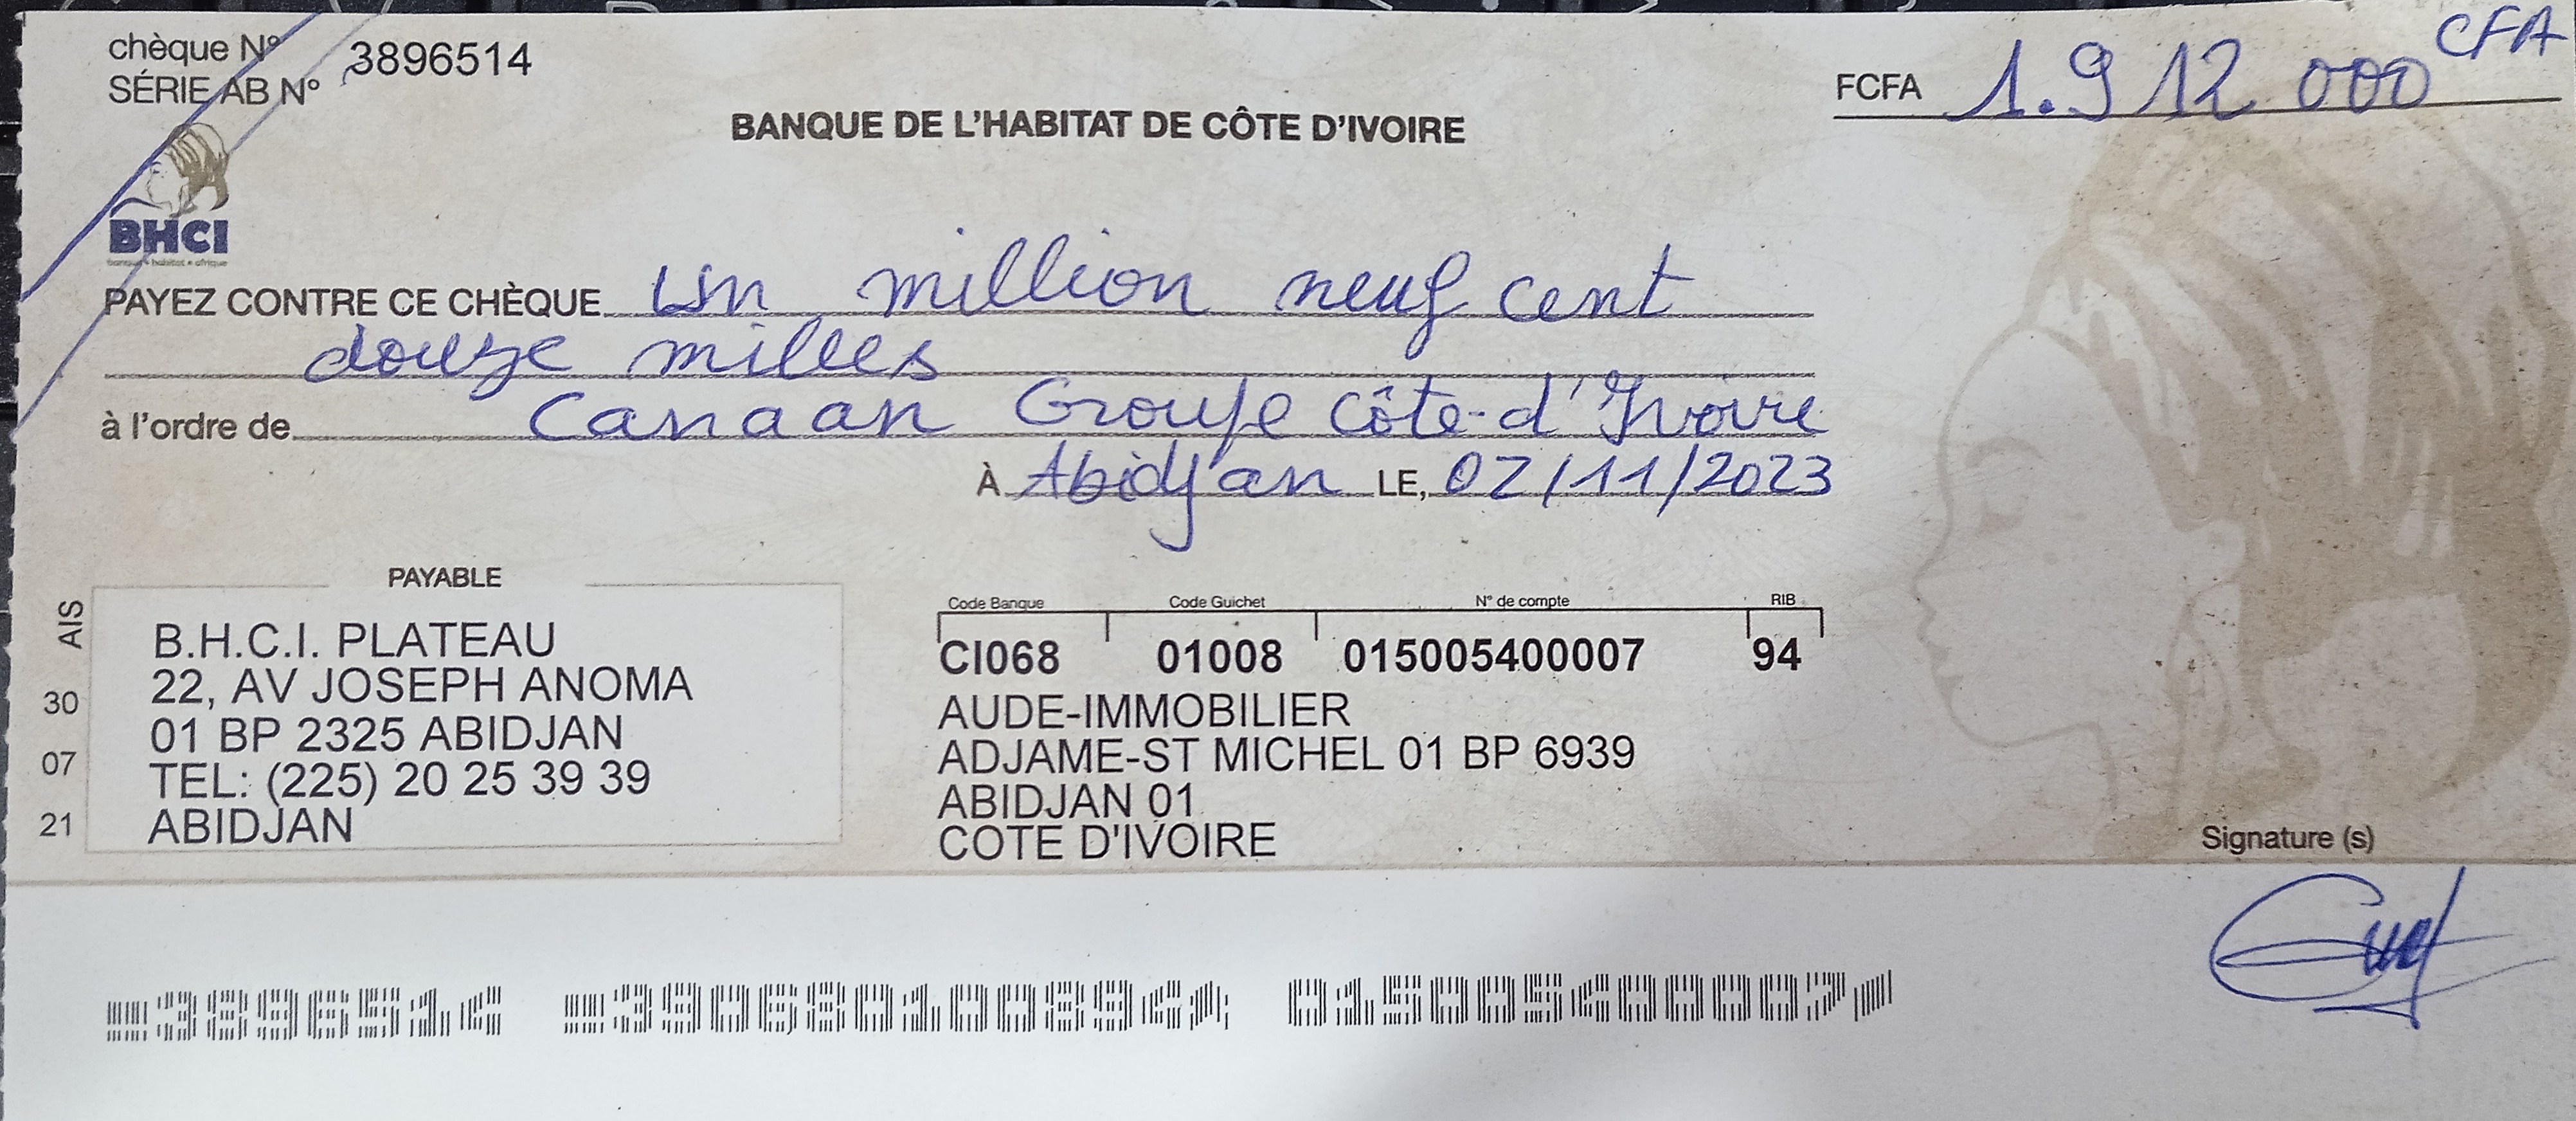 chèque N° 3896514
SÉRIE AB N°
FCFA 1.912 000 CFA
BANQUE DE L'HABITAT DE CÔTE D'IVOIRE
BHCI
banque • habitat • afrique
PAYEZ CONTRE CE CHÈQUE Un million neuf cent
douze milles
à l'ordre de Canaan Groupe Côte-d'Ivoire
À Abidjan LE, 02/11/2023
PAYABLE
B.H.C.I. PLATEAU
22, AV JOSEPH ANOMA
01 BP 2325 ABIDJAN
TEL: (225) 20 25 39 39
ABIDJAN
AIS
30
07
21
Code Banque Code Guichet N° de compte RIB
CI068 01008 015005400007 94
AUDE-IMMOBILIER
ADJAME-ST MICHEL 01 BP 6939
ABIDJAN 01
COTE D'IVOIRE
Signature (s)
3896514 390680100894 015005400007